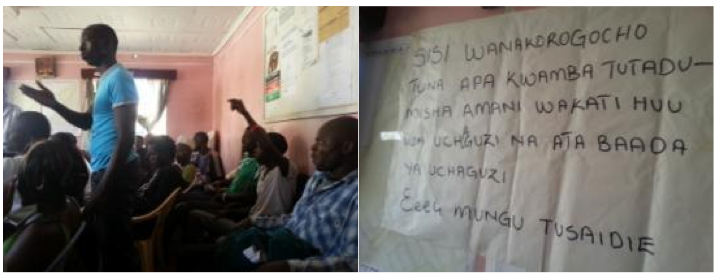 SISI WANAKOROGOCHO
TUNA APA KWAMBA TUTADU-
MISHA AMANI WAKATI HUU
WA UCHAGUZI NA ATA BAADA
YA UCHAGUZI
Eeee MUNGU TUSAIDIE